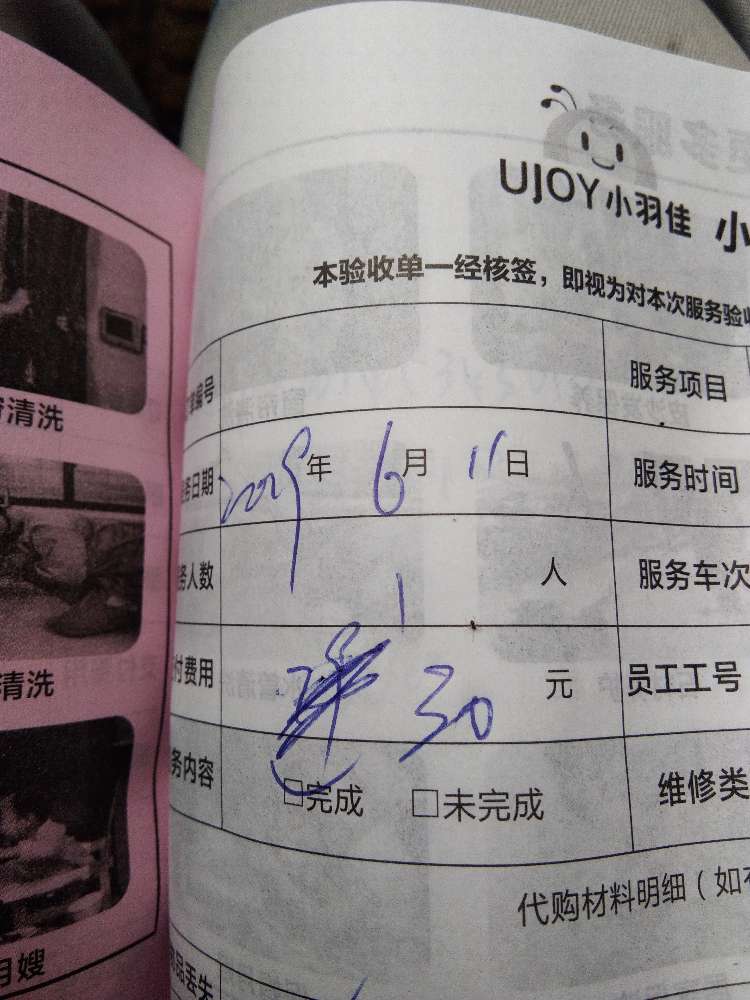 UJOY小羽佳 小
本验收单一经核签，即视为对本次服务验收
编号 服务项目
务日期 2029年 6月 11日 服务时间
务人数 1 人 服务车次
付费用 30 元 员工工号
务内容 □完成 □未完成 维修类
代购材料明细（如有
品丢失
清洗
清洗
月嫂